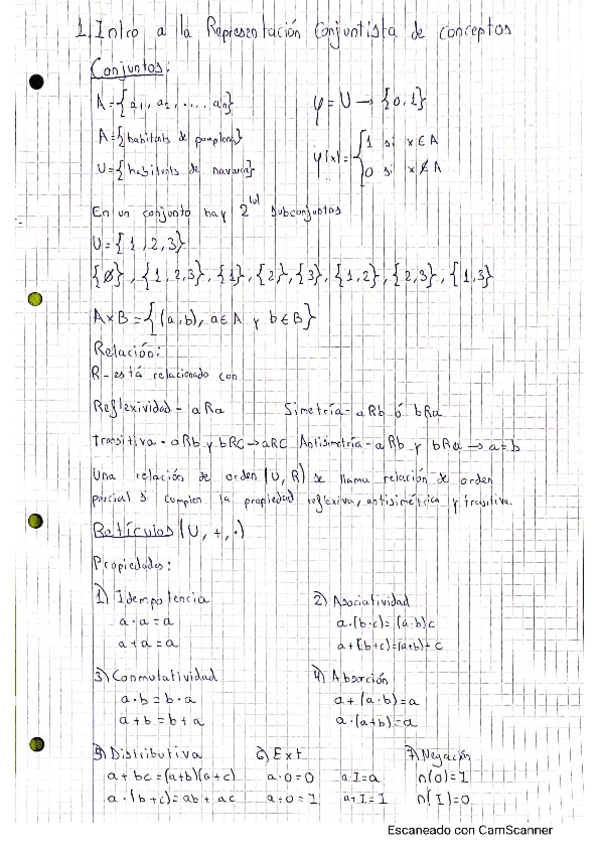 1. Intro a la Representación Conjuntista de conceptos
Conjuntos:
A={a1, a2, .... an}
φ=U→{0,1}
A={habitants de pamplona}
φ(x)={1 si x∈A
0 si x∉A
U={habitants de navarra}
En un conjunto hay 2^|U| subconjuntos
U={1,2,3}
{∅}, {1,2,3}, {1}, {2}, {3}, {1,2}, {2,3}, {1,3}
A×B={(a,b), a∈A y b∈B}
Relación:
R-está relacionado con
Reflexividad - aRa Simetría - aRb ó bRa
Transitiva - aRb y bRC→aRC Antisimetría - aRb y bRa→a=b
Una relación de orden (U,R) se llama relación de orden
parcial si cumplen la propiedad reflexiva, antisimétrica y transitiva.
Retículos (U,+,·)
Propiedades:
1) Idempotencia 2) Asociatividad
a·a=a a·(b·c)=(a·b)c
a+a=a a+(b+c)=(a+b)+c
3) Conmutatividad 4) Absorción
a·b=b·a a+(a·b)=a
a+b=b+a a·(a+b)=a
5) Distributiva 6) Ext 7) Negación
a+bc=(a+b)(a+c) a·0=0 a·I=a n(0)=I
a·(b+c)=ab+ac a+0=I a+I=I n(I)=0
Escaneado con CamScanner